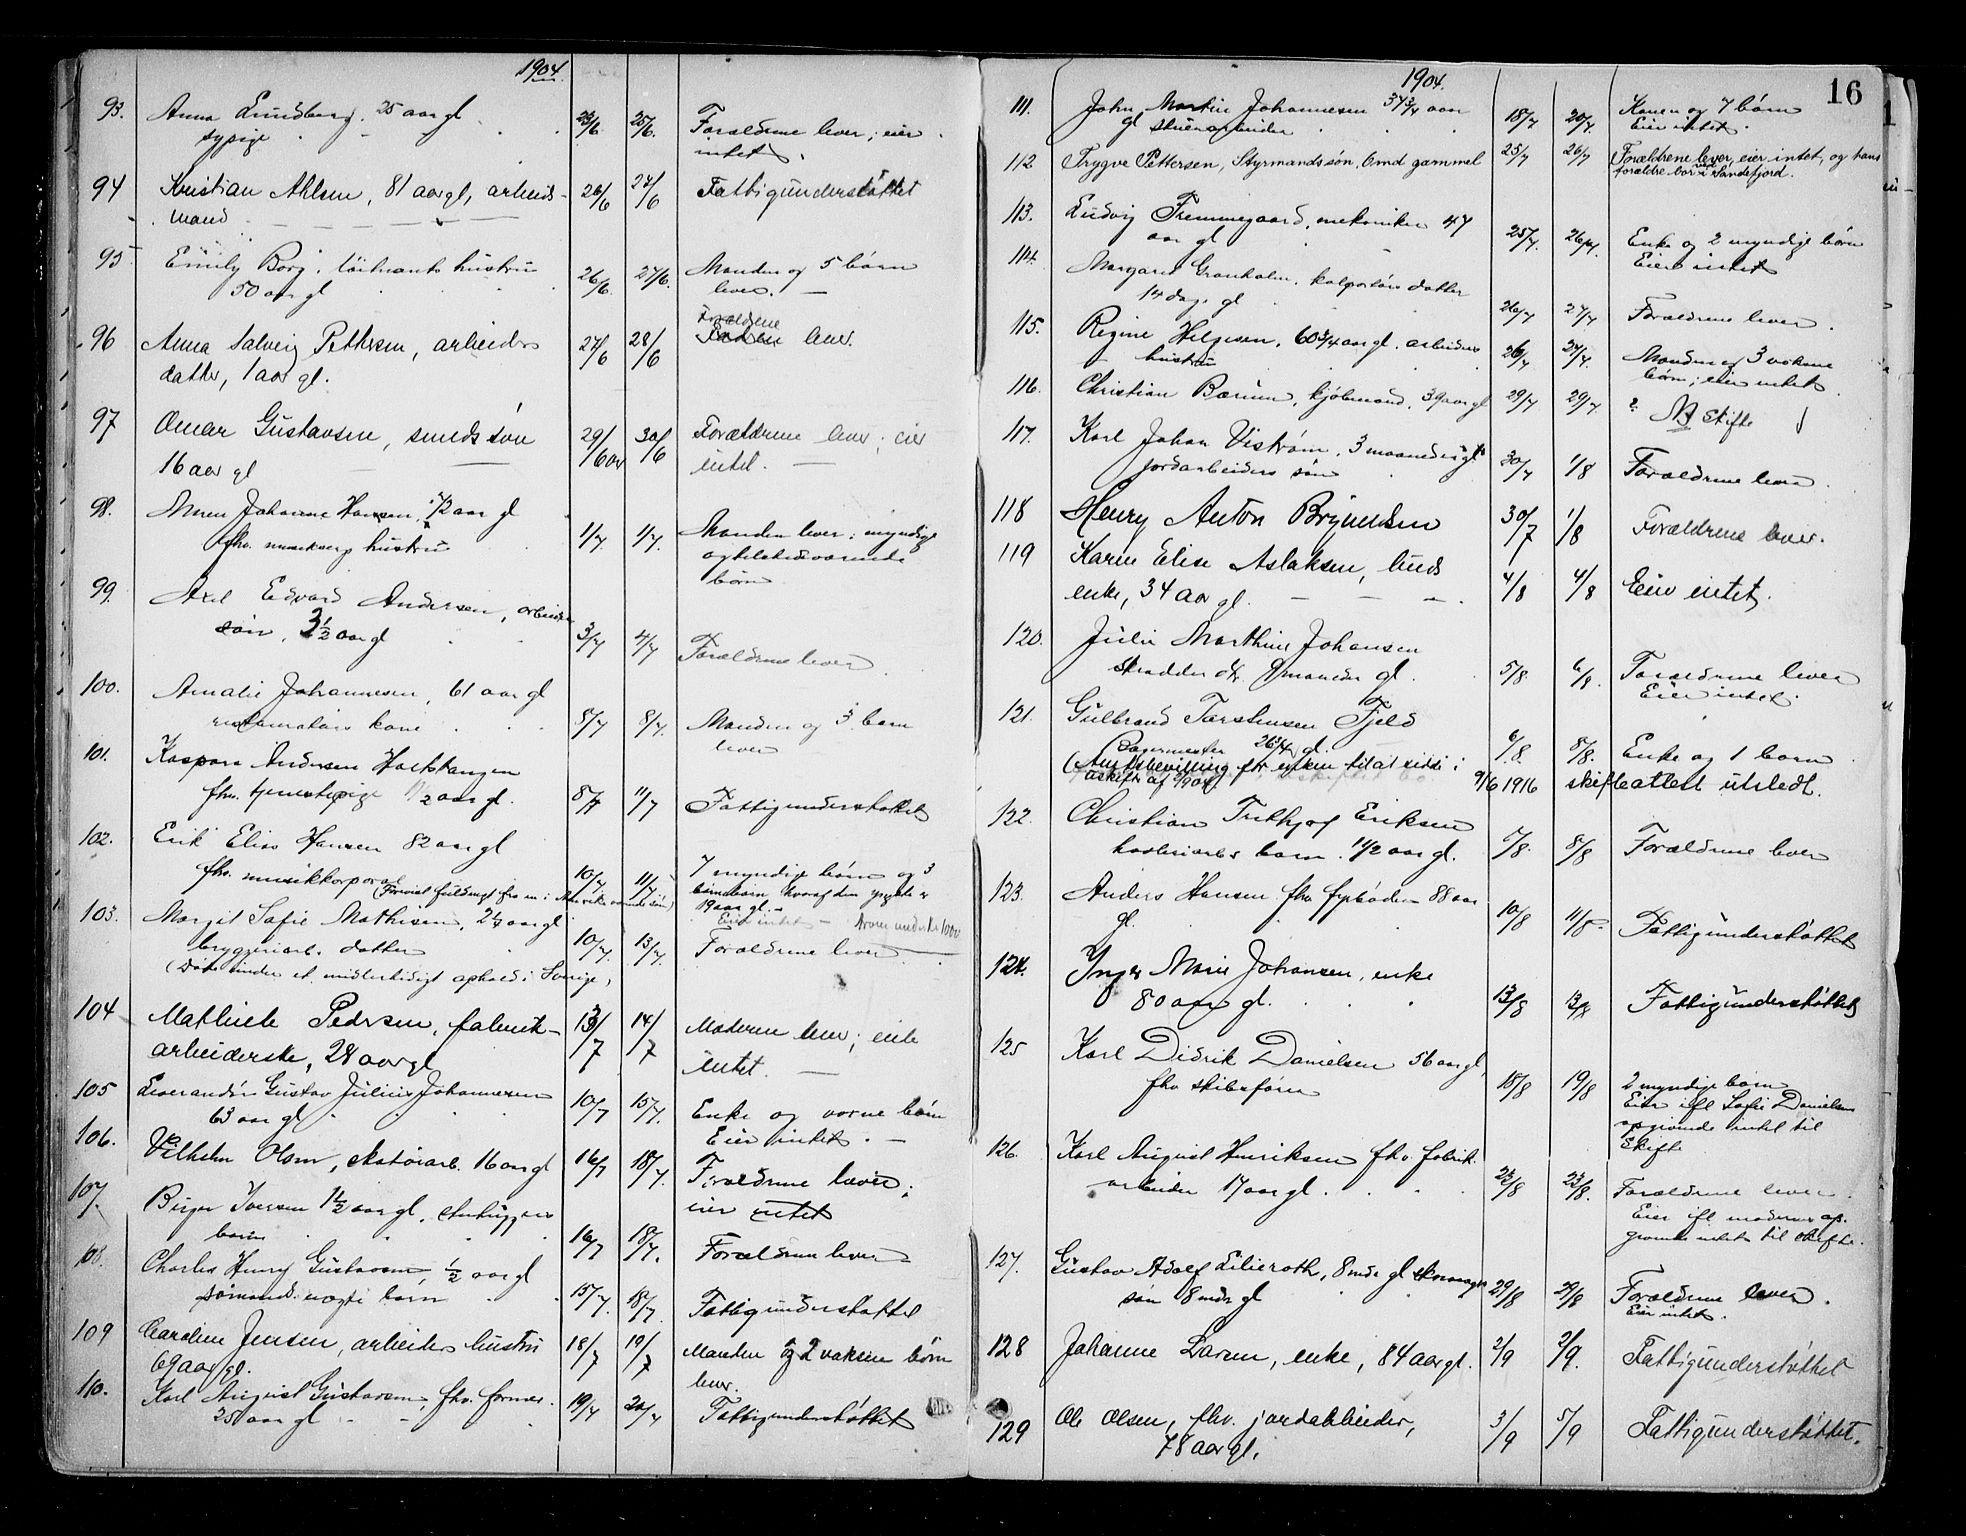 1904.
93. Anna Lundberg, 25 aar gl 23/6 25/6. Forældrene lever; eier
sypige intet.
94 Kristian Ahlsen, 81 aar gl, arbeids- 26/6 27/6 Fattigunderstøttet
mand
95 Emily Borg, løitnants hustru 26/6. 27/6. Manden og 5 børn
50 aar gl lever.
96 Anna Solveig Pettersen, arbeiders 27/6 28/6 Forældrene lever.
datter, 1 aar gl.
97 Omar Gustavsen, smeds søn 29/6 30/6 Forældrene lever; eier
16 aar gl intet.
98. Maren Johanne Hansen, aar gl 1/7 1/7. Manden lever; myndige
fhv. hustru
børn
99. Axel Edvard Andersen, arbeider
søn, 3 1/2 aar gl 3/7 4/7 Forældrene lever
100. Amalie Johannesen, 61 aar gl
restauratørs kone 8/7 8/7. Manden og 3 børn
lever
101. Kaspara Andersen
fhv. tjenestepige aar gl. 8/7 11/7 Fattigunderstøttet
102. Erik Elias Hansen 82 aar gl
fhv. musikkorporal 10/7 11/7 7 myndige børn og 3
børnebørn hvoraf den yngste er
19 aar gl.
Eier intet
103. Margit Sofie Mathisen, aar gl
bryggeriarb. datter 10/7. 13/7. Forældrene lever
(Døde under et midlertidigt ophold i Sverige)
104 Mathilde Pedersen, fabrik- 13/7 14/7 Moderen lever; eide
arbeiderske, 28 aar gl intet.
105 Leverandør Gustav Julius Johannesen 10/7 15/7. Enke og voxne børn
63 aar gl Eier intet.
106. Vilhelm Olsen, skotøiarb. 16 aar gl 16/7 18/7. Forældrene lever;
eier intet
107. Birger Iversen 1 1/2 aar gl, stenhuggers
barn 16/7 18/7. Forældrene lever
108. Charles Henry Gustavsen, 1/2 aar gl
sømands uægte barn 15/7. 18/7. Fattigunderstøttet
109 Caroline Jensen, arbeiders hustru 18/7 19/7 Manden og 2 voksne børn
69 aar gl. lever.
110. Karl August Gustavsen, fhv. former. 19/7 20/7 Fattigunderstøttet
25 aar gl
1904. 16
111. John Martin Johannesen 37 3/4 aar 18/7 20/7. Konen og 7 børn
gl stuerarbeider Eier intet.
112 Trygve Pettersen, Styrmandssøn, 6md gammel 25/7 26/7 Forældrene lever, eier intet, og hans
forældre bor ved Sandefjord.
113. Ludvig Fremmegaard, mekaniker 47
aar gl 25/7. 26/7. Enke og 2 myndige børn
Eier intet
114. Margaret Granholm, kolportørs datter
14 dage gl 26/7 27/7 Forældrene lever.
115. Regine Helgesen, 60 3/4 aar gl. arbeiders
hustru 26/7 27/7. Manden og 3 voksne
børn; eier intet
116. Christian Bærum, kjøbmand, 39 aar gl 29/7 29/7. ? NB skifte
117. Karl Johan Vistrøm, 3 maaneder gl
jordarbeiders søn 30/7 1/8 Forældrene lever
118 Henry Anton Brynildsen 30/7 1/8 Forældrene lever.
119 Karen Elise Aslaksen, buds 4/8 4/8 Eier intet.
enke, 34 aar gl.
120. Julie Marthine Johansen
skrædder dtr. 9 maaneder gl. 5/8 6/8. Forældrene lever
Eier intet.
121. Gulbrand Torstensen Fjeld
Bagermester 26 3/4 gl. 6/8. 8/8. Enke og 1 barn
(Amtsbevilling for enken til at sidde i
uskifte af /9 04) 9/6 1916 skifteattest utstedt.
122. Christian Fritjof Eriksen
barn. 1 1/2 aar gl. 7/8. 8/8 Forældrene lever
123. Anders Hansen fhv fyrbøder 88 aar
gl. 10/8 11/8 Fattigunderstøttet
124. Inger Marie Johansen, enke
80 aar gl. 13/8 13/8 Fattigunderstøttet
125 Karl Didrik Danielsen 56 aar gl,
fhv skibsfører 18/8 19/8 2 myndige børn
Eier ifl Sofie Danielsens
opgivende intet til
Skifte
126. Karl August Henriksen fhv. fabrik.
arbeider 17 aar gl. 22/8 23/8. Forældrene lever.
Eier ifl moderens op-
givende intet til skifte.
127. Gustav Adolf Lilieroth, 8 mdr gl skomager 29/8 29/8 Forældrene lever.
søn 8 mdr gl Eier intet.
128 Johanne Larsen, enke, 84 aar gl. 2/9 2/9. Fattigunderstøttet
129 Ole Olsen, fhv. jordarbeider, 3/9 5/9 Fattigunderstøttet.
78 aar gl.